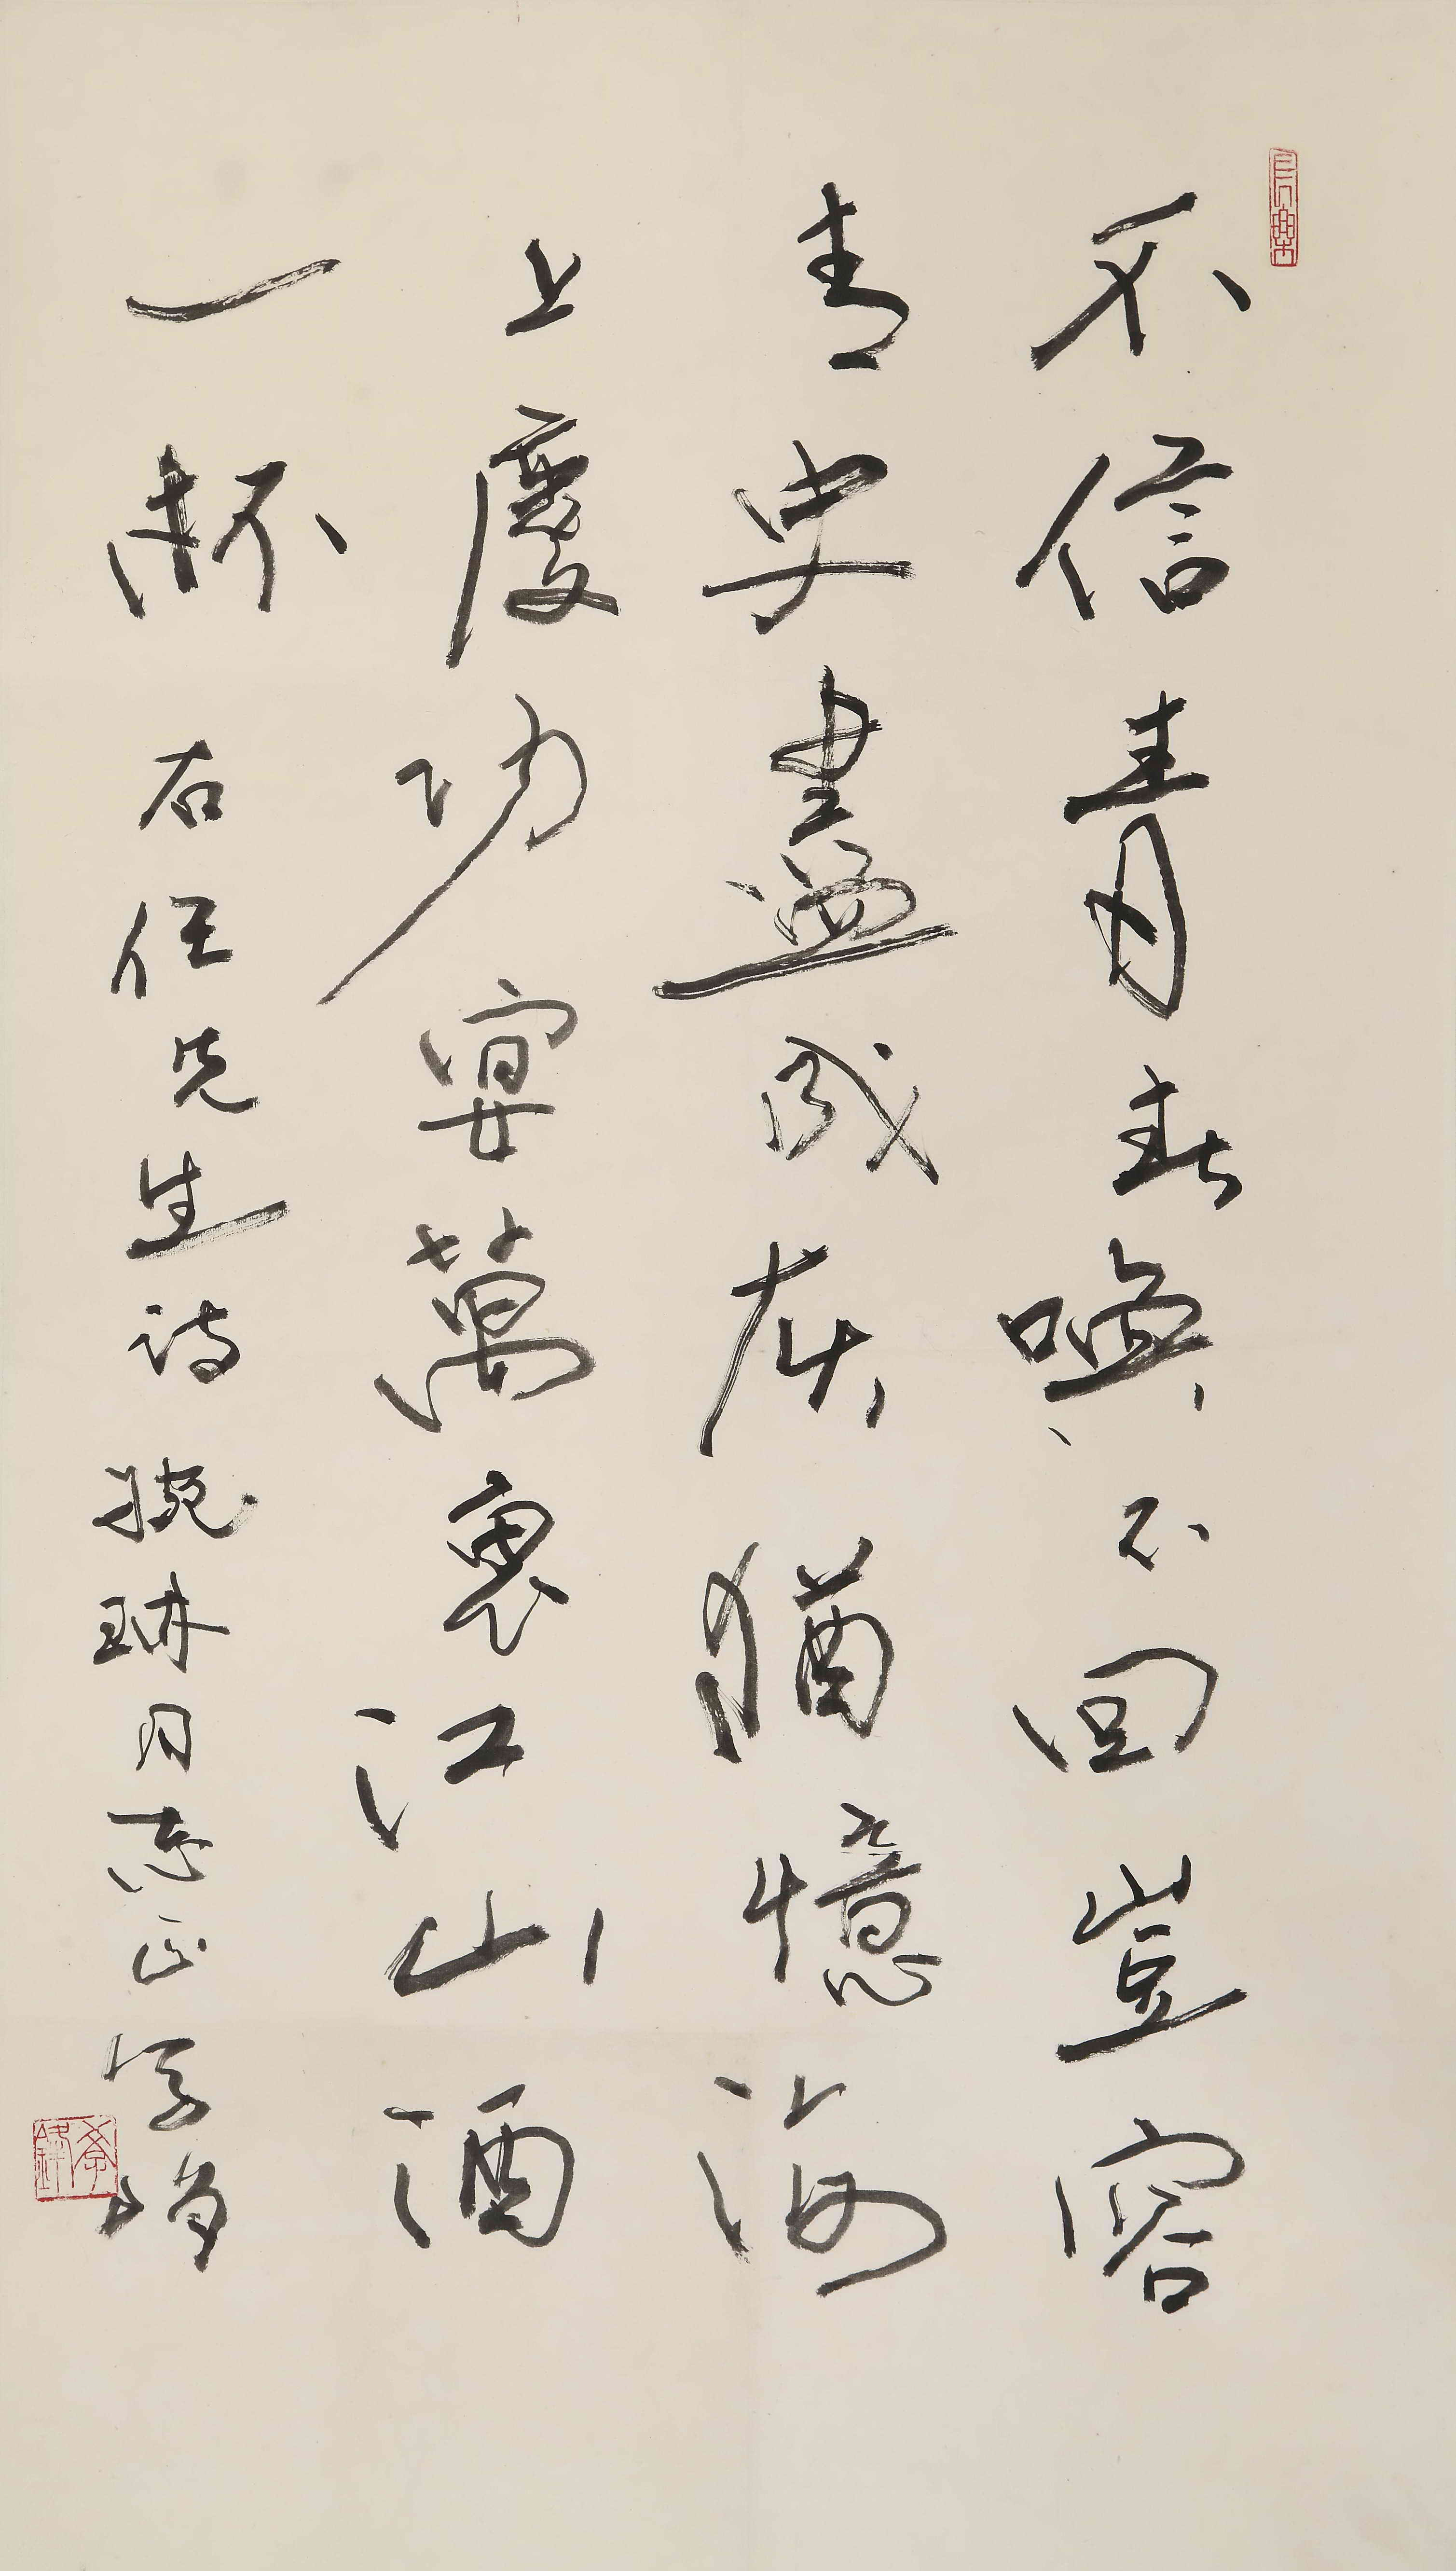 不信青春喚不回豈容
青史盡成灰猶憶海
上慶功宴萬裏江山酒
一杯 右任先生詩 婉琳同志正